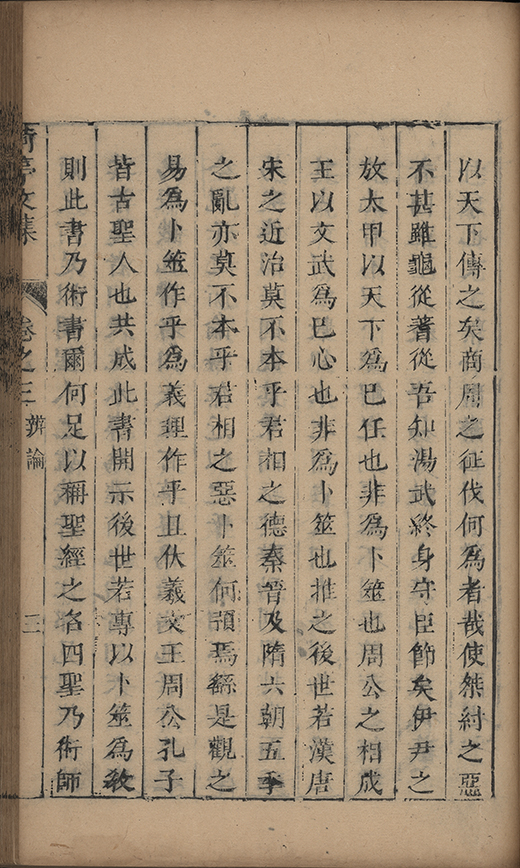 以天下傳之矣商周之征伐何爲者哉使桀紂之惡
不甚雖龜從蓍從吾知湯武終身守臣節矣伊尹之
放太甲以天下爲已任也非爲卜筮也周公之相成
王以文武爲已心也非爲卜筮也推之後世若漢唐
宋之近治莫不本乎君相之德秦晉及隋六朝五季
之亂亦莫不本乎君相之惡卜筮何預焉繇是觀之
易爲卜筮作乎爲義理作乎且伏羲文王周公孔子
皆古聖人也共成此書開示後世若專以卜筮爲教
則此書乃術書爾何足以稱聖經之名四聖乃術師
亭文集 卷之三 辨論 三